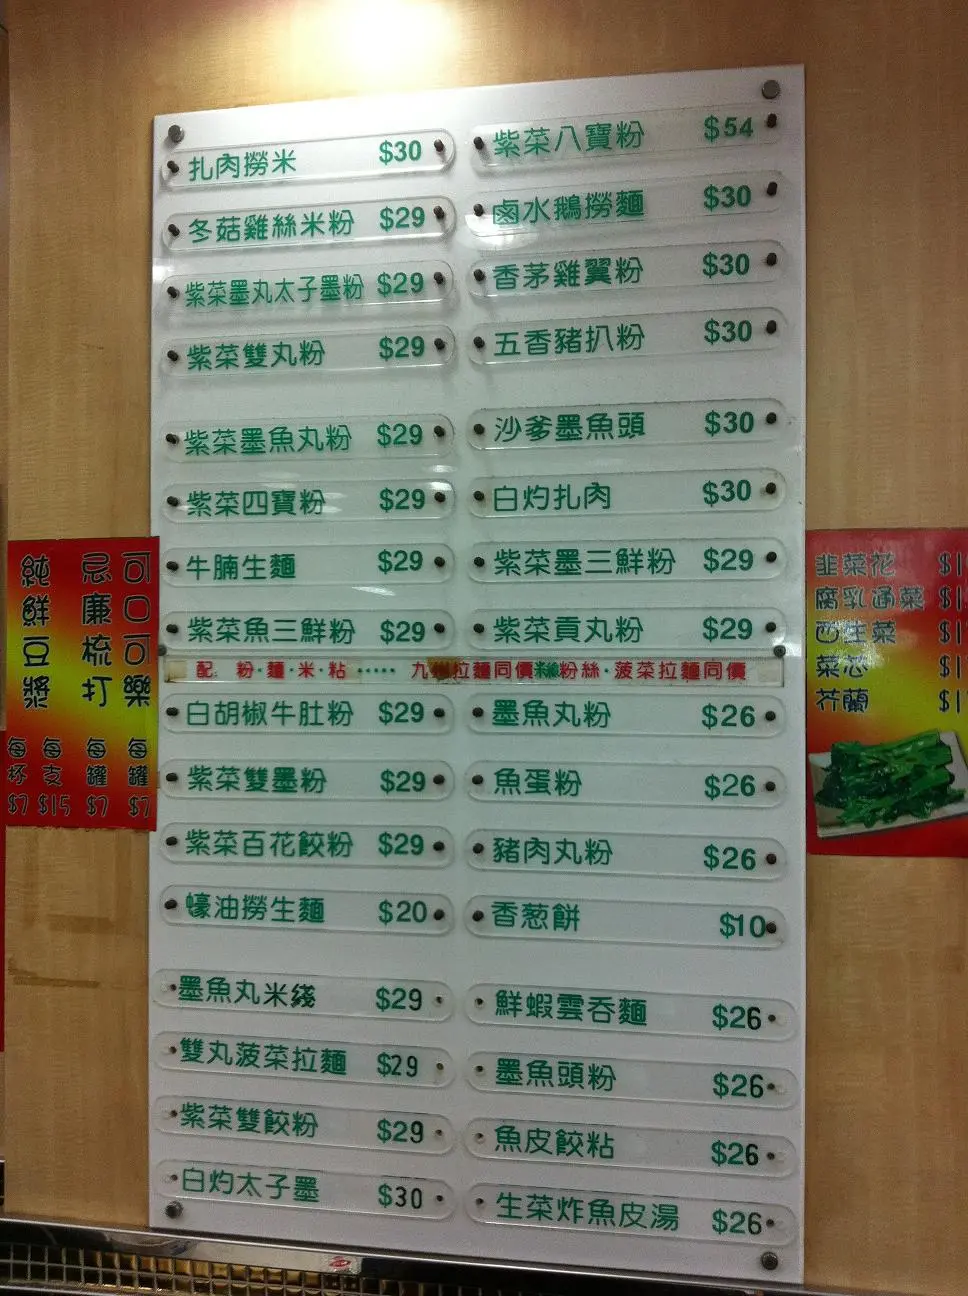 扎肉撈米 $30
冬菇雞絲米粉 $29
紫菜墨丸太子墨粉 $29
紫菜雙丸粉 $29
紫菜墨魚丸粉 $29
紫菜四寶粉 $29
牛腩生麵 $29
紫菜魚三鮮粉 $29
紫菜八寶粉 $54
鹵水鵝撈麵 $30
香茅雞翼粉 $30
五香豬扒粉 $30
沙爹墨魚頭 $30
白灼扎肉 $30
紫菜墨三鮮粉 $29
紫菜貢丸粉 $29
配 粉·麵·米·粘····· 九州拉麵同價 粉絲·菠菜拉麵同價
白胡椒牛肚粉 $29
紫菜雙墨粉 $29
紫菜百花餃粉 $29
蠔油撈生麵 $20
墨魚丸米綫 $29
雙丸菠菜拉麵 $29
紫菜雙餃粉 $29
白灼太子墨 $30
墨魚丸粉 $26
魚蛋粉 $26
豬肉丸粉 $26
香葱餅 $10
鮮蝦雲吞麵 $26
墨魚頭粉 $26
魚皮餃粘 $26
生菜炸魚皮湯 $26
可口可樂 每罐 $7
忌廉梳打 每罐 $7
每支 $15
純鮮豆漿 每杯 $7
韭菜花
腐乳通菜
西生菜
菜芯
芥蘭